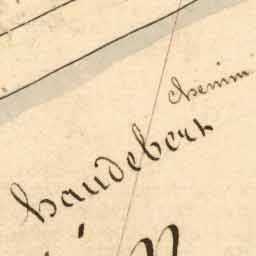 chemin
haudebert